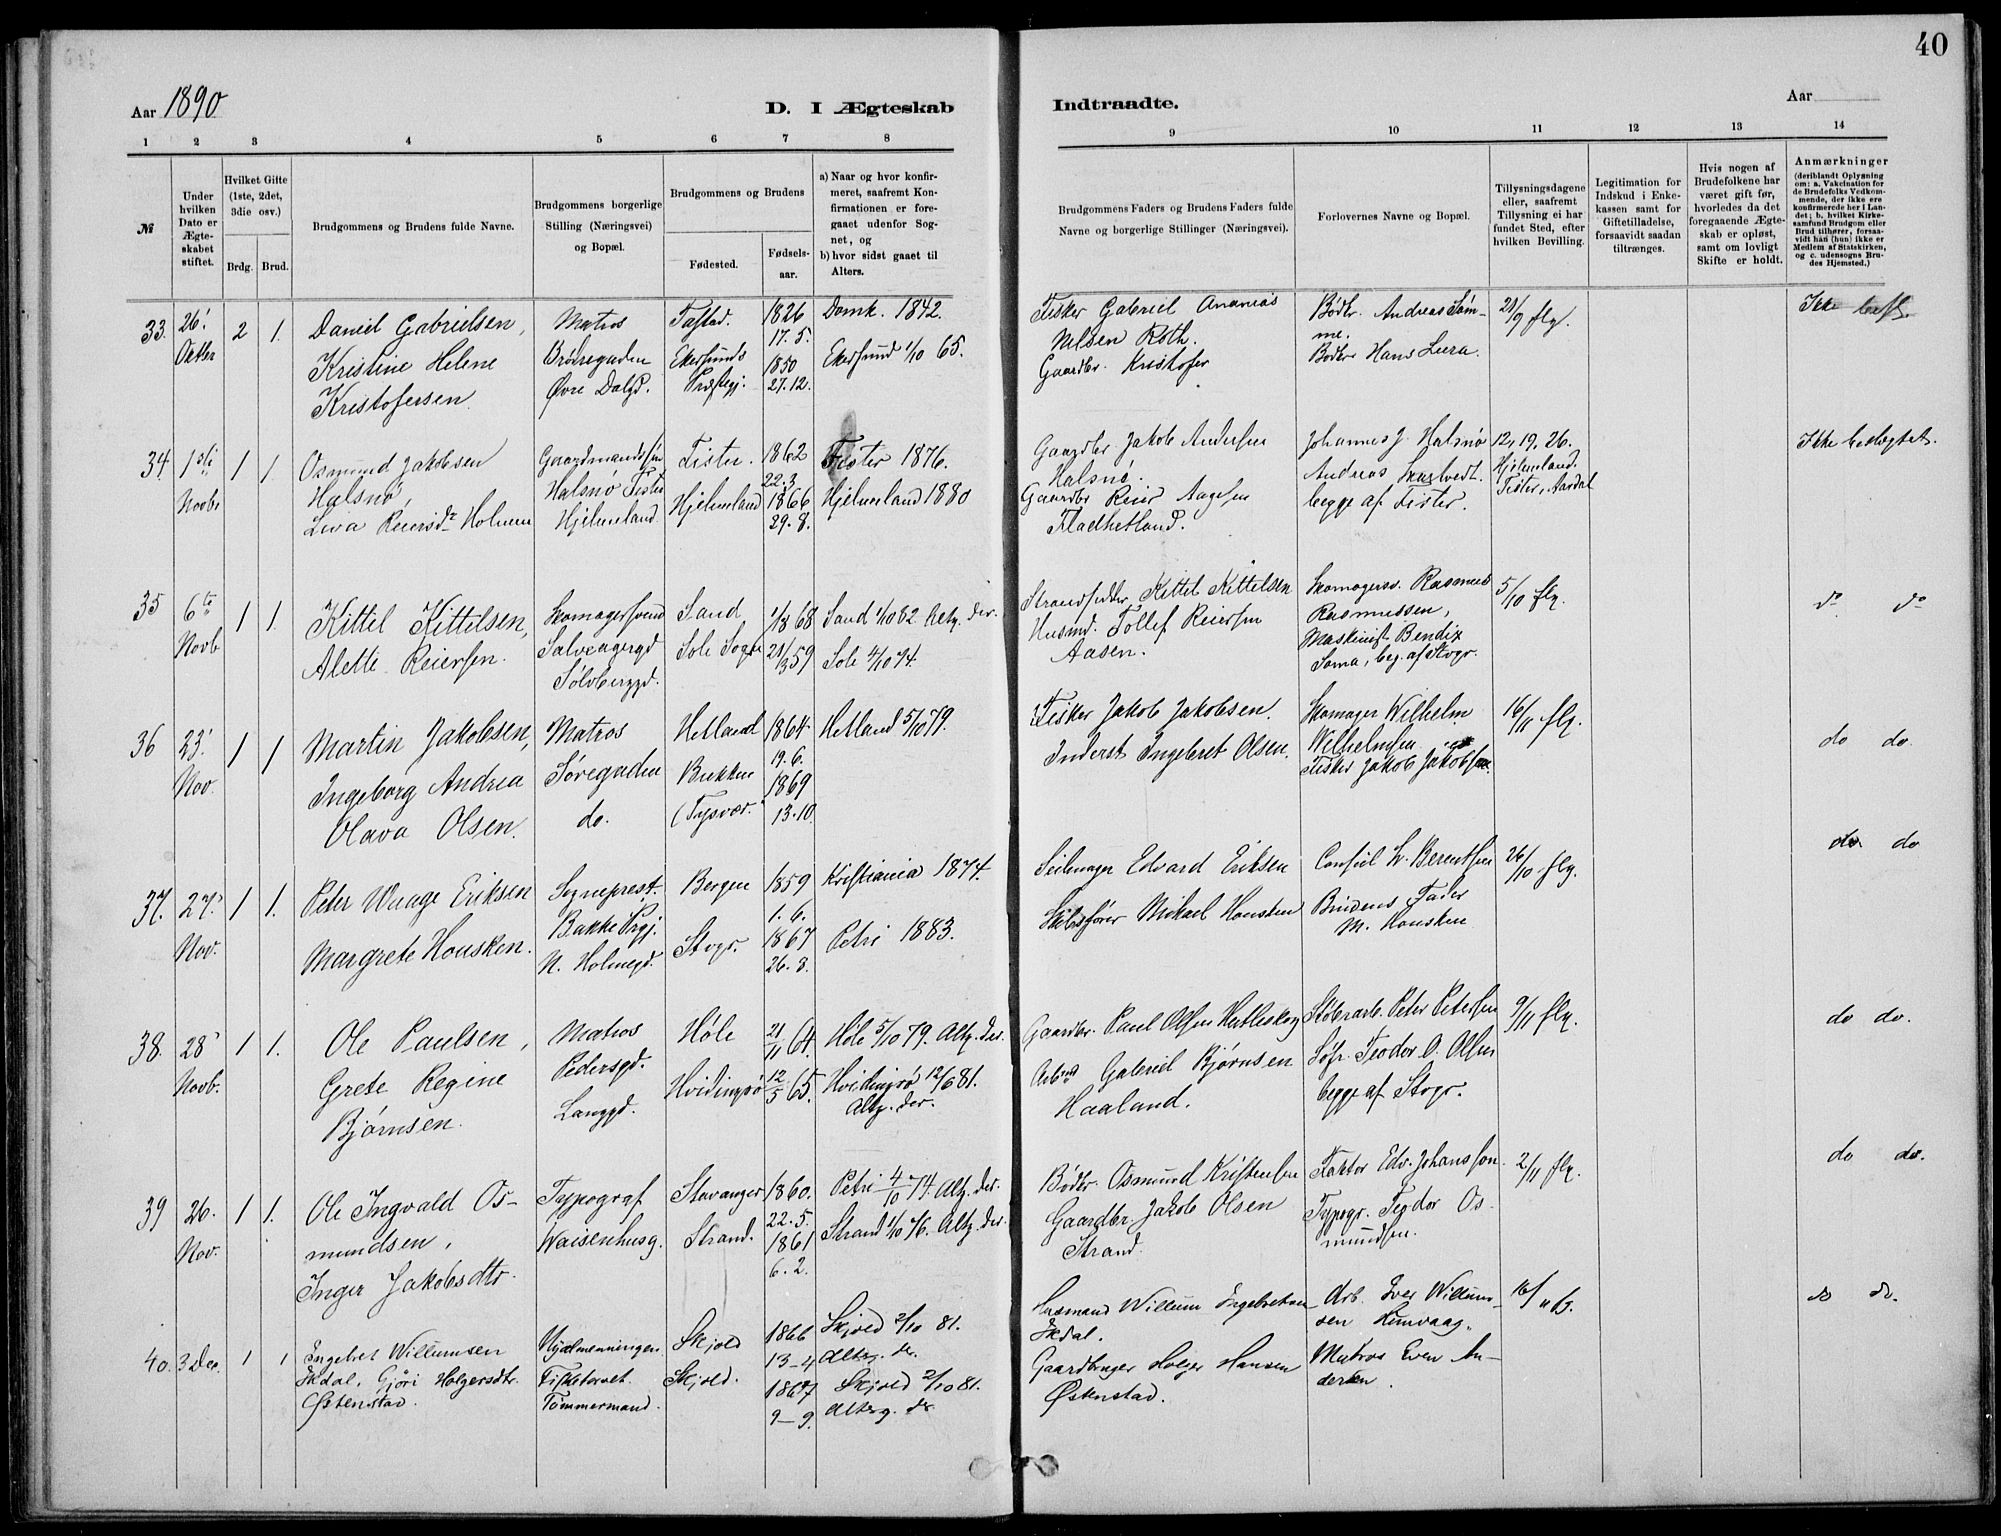 40
Aar 1890
D. I Ægteskab
Indtraadte.
Aar
1 2 3 4 5 6 7 8
9 10 11 12 13 14
№
Under hvilken Dato er Ægteskabet stiftet.
Hvilket Gifte (1ste, 2det, 3die osv.)
Brdg. Brud.
Brudgommens og Brudens fulde Navne.
Brudgommens borgerlige Stilling (Næringsvei) og Bopæl.
Brudgommens og Brudens
Fødested.
Fødselsaar.
a) Naar og hvor konfirmeret, saafremt Konfirmationen er foregaaet udenfor Sognet, og
b) hvor sidst gaaet til Alters.
Brudgommens Faders og Brudens Faders fulde Navne og borgerlige Stillinger (Næringsvei).
Forlovernes Navne og Bopæl.
Tillysningsdagene eller, saafremt Tillysning ei har fundet Sted, efter hvilken Bevilling.
Legitimation for Indskud i Enkekassen samt for Giftetilladelse, forsaavidt saadan tiltrænges.
Hvis nogen af Brudefolkene har været gift før, hvorledes da det foregaaende Ægteskab er opløst, samt om lovligt Skifte er holdt.
Anmærkninger
(deriblandt Oplysning om: a. Vakcination for de Brudefolks Vedkommende, der ikke ere konfirmerede her i Landet; b. hvilket Kirkesamfund Brudgom eller Brud tilhører, forsaavidt han (hun) ikke er Medlem af Statskirken, og c. udensogns Brudes Hjemsted.)
33. 26' Oktbr 2 1.
Daniel Gabrielsen,
Kristine Helene
Kristofersen
Matros
Brönegaden
Øvre Dalgd.
Tastad.
Ekersunds
Præstegj.
1826
17. 5.
1850
27. 12.
Domk. 1842.
Ekersund 1/10 65.
Fisker Gabriel Ananias
Nilsen Roth.
Gaardbr. Kristofer
Bødkr. Andreas Sömme.
Bødkr Hans Lura.
21/9 flg.
Ikke
34. 1ste Novbr 1 1.
Osmund Jakobsen
Halsnö,
Liva Reiersdr Holmen
Gaardmandssön
Halsnö Fister
Hjelmeland.
Fister.
Hjelmeland
1862
22. 3
1866
29. 8.
Fister 1876.
Hjelmeland 1880
Gaardbr Jakob Andersen
Halsnö.
Gaardbr Reier Aagesen
Fladhetland.
Johannes J. Halsnö
Andreas
begge af Fister.
12, 19. 26.
Hjelmeland.
Fister, Aardal
Ikke bedagtet.
35 6te Novb. 1 1.
Kittil Kittelsen,
Alette Reiersen.
Skomagersvend
Salveagergd
Sølvberggd.
Sand
Sole Sogn
1/8 68
21/3 59
Sand 1/10 82 Altg. der.
Sole 4/10 74.
Strandsidder Kittel Kittelsen
Husmd. Tollef Reiersen
Aasen.
Skomagersv. Rasmus
Rasmussen,
Maskinist Bendix
Soma, beg. af Stvgr.
5/10 flg.
do do
36 23' Nov. 1 1
Martin Jakobsen,
Ingeborg Andrea
Olava Olsen.
Matros
Søregaden
do.
Hetland
Bukken
(Tysvær.
1864
19. 6.
1869
13. 10.
Hetland 5/10 79.
Fisker Jakob Jakobsen.
Inderst Ingebret Olsen.
Skomager Wilhelm
Wilhelmsen
Fisker Jakob Jakobsen.
16/11 flg.
do do.
37. 27' Nov. 1 1.
Peter Waage Eriksen
Margrete Housken.
Sogneprest.
Bakke Prgj.
N. Holmegd.
Bergen
Stvgr.
1859
1. 6.
1867
26. 8.
Kristiania 1874.
Petri 1883.
Seilmager Edvard Eriksen
Skibsfører Mikael Housken
Consul W. Berentsen
Brudens Fader
M. Housken
26/10 flg.
do. do
38. 28' Novb. 1 1.
Ole Paulsen,
Grete Regine
Bjørnsen.
Matros
Pedersgd.
Langgd.
Høle
Hvidingsö
21/11 64.
12/5 65.
Høle 5/10 79. Altg. der.
Hvidingsö 12/6 81.
Altg. der.
Gaardbr. Paul Olsen
Arbmd Gabriel Bjørnsen
Haaland.
Støberarb. Peter Petersen
Søfr. Teodor O. Olsen
begge af Stvgr.
9/11 flg.
do do.
39 26. Nov. 1 1.
Ole Ingvald Osmundsen,
Inger Jakobsdtr.
Typograf
Waisenhusg.
Stavanger
Strand.
1860.
22. 5.
1861
6. 2.
Petri 4/10 74. Altg. der.
Strand 1/10 76. Altg. der
Bødkr. Osmund Kristensen
Gaardbr. Jakob Olsen
Strand.
Faktor Edv. Johanssen
Typogr. Teodor Osmundsen.
2/11 flg.
do do.
40. 3 Dec. 1 1
Ingebret Willumsen
Ikdal, Gjöri Holgersdtr.
Østenstad.
Fisketorvet.
Tömmermand.
Skjold
Skjold.
1866
13-4
1867
9-9.
Skjold 2/10 81.
Alterg. dr.
Skjold 2/10 81.
Alterg. dr.
Husmand Willum Ingebretsen
Ikdal.
Gaardbruger Holger Hansen
Østenstad.
Arb. Iver Willumsen
Matros Even Andersen.
16/11
do do.